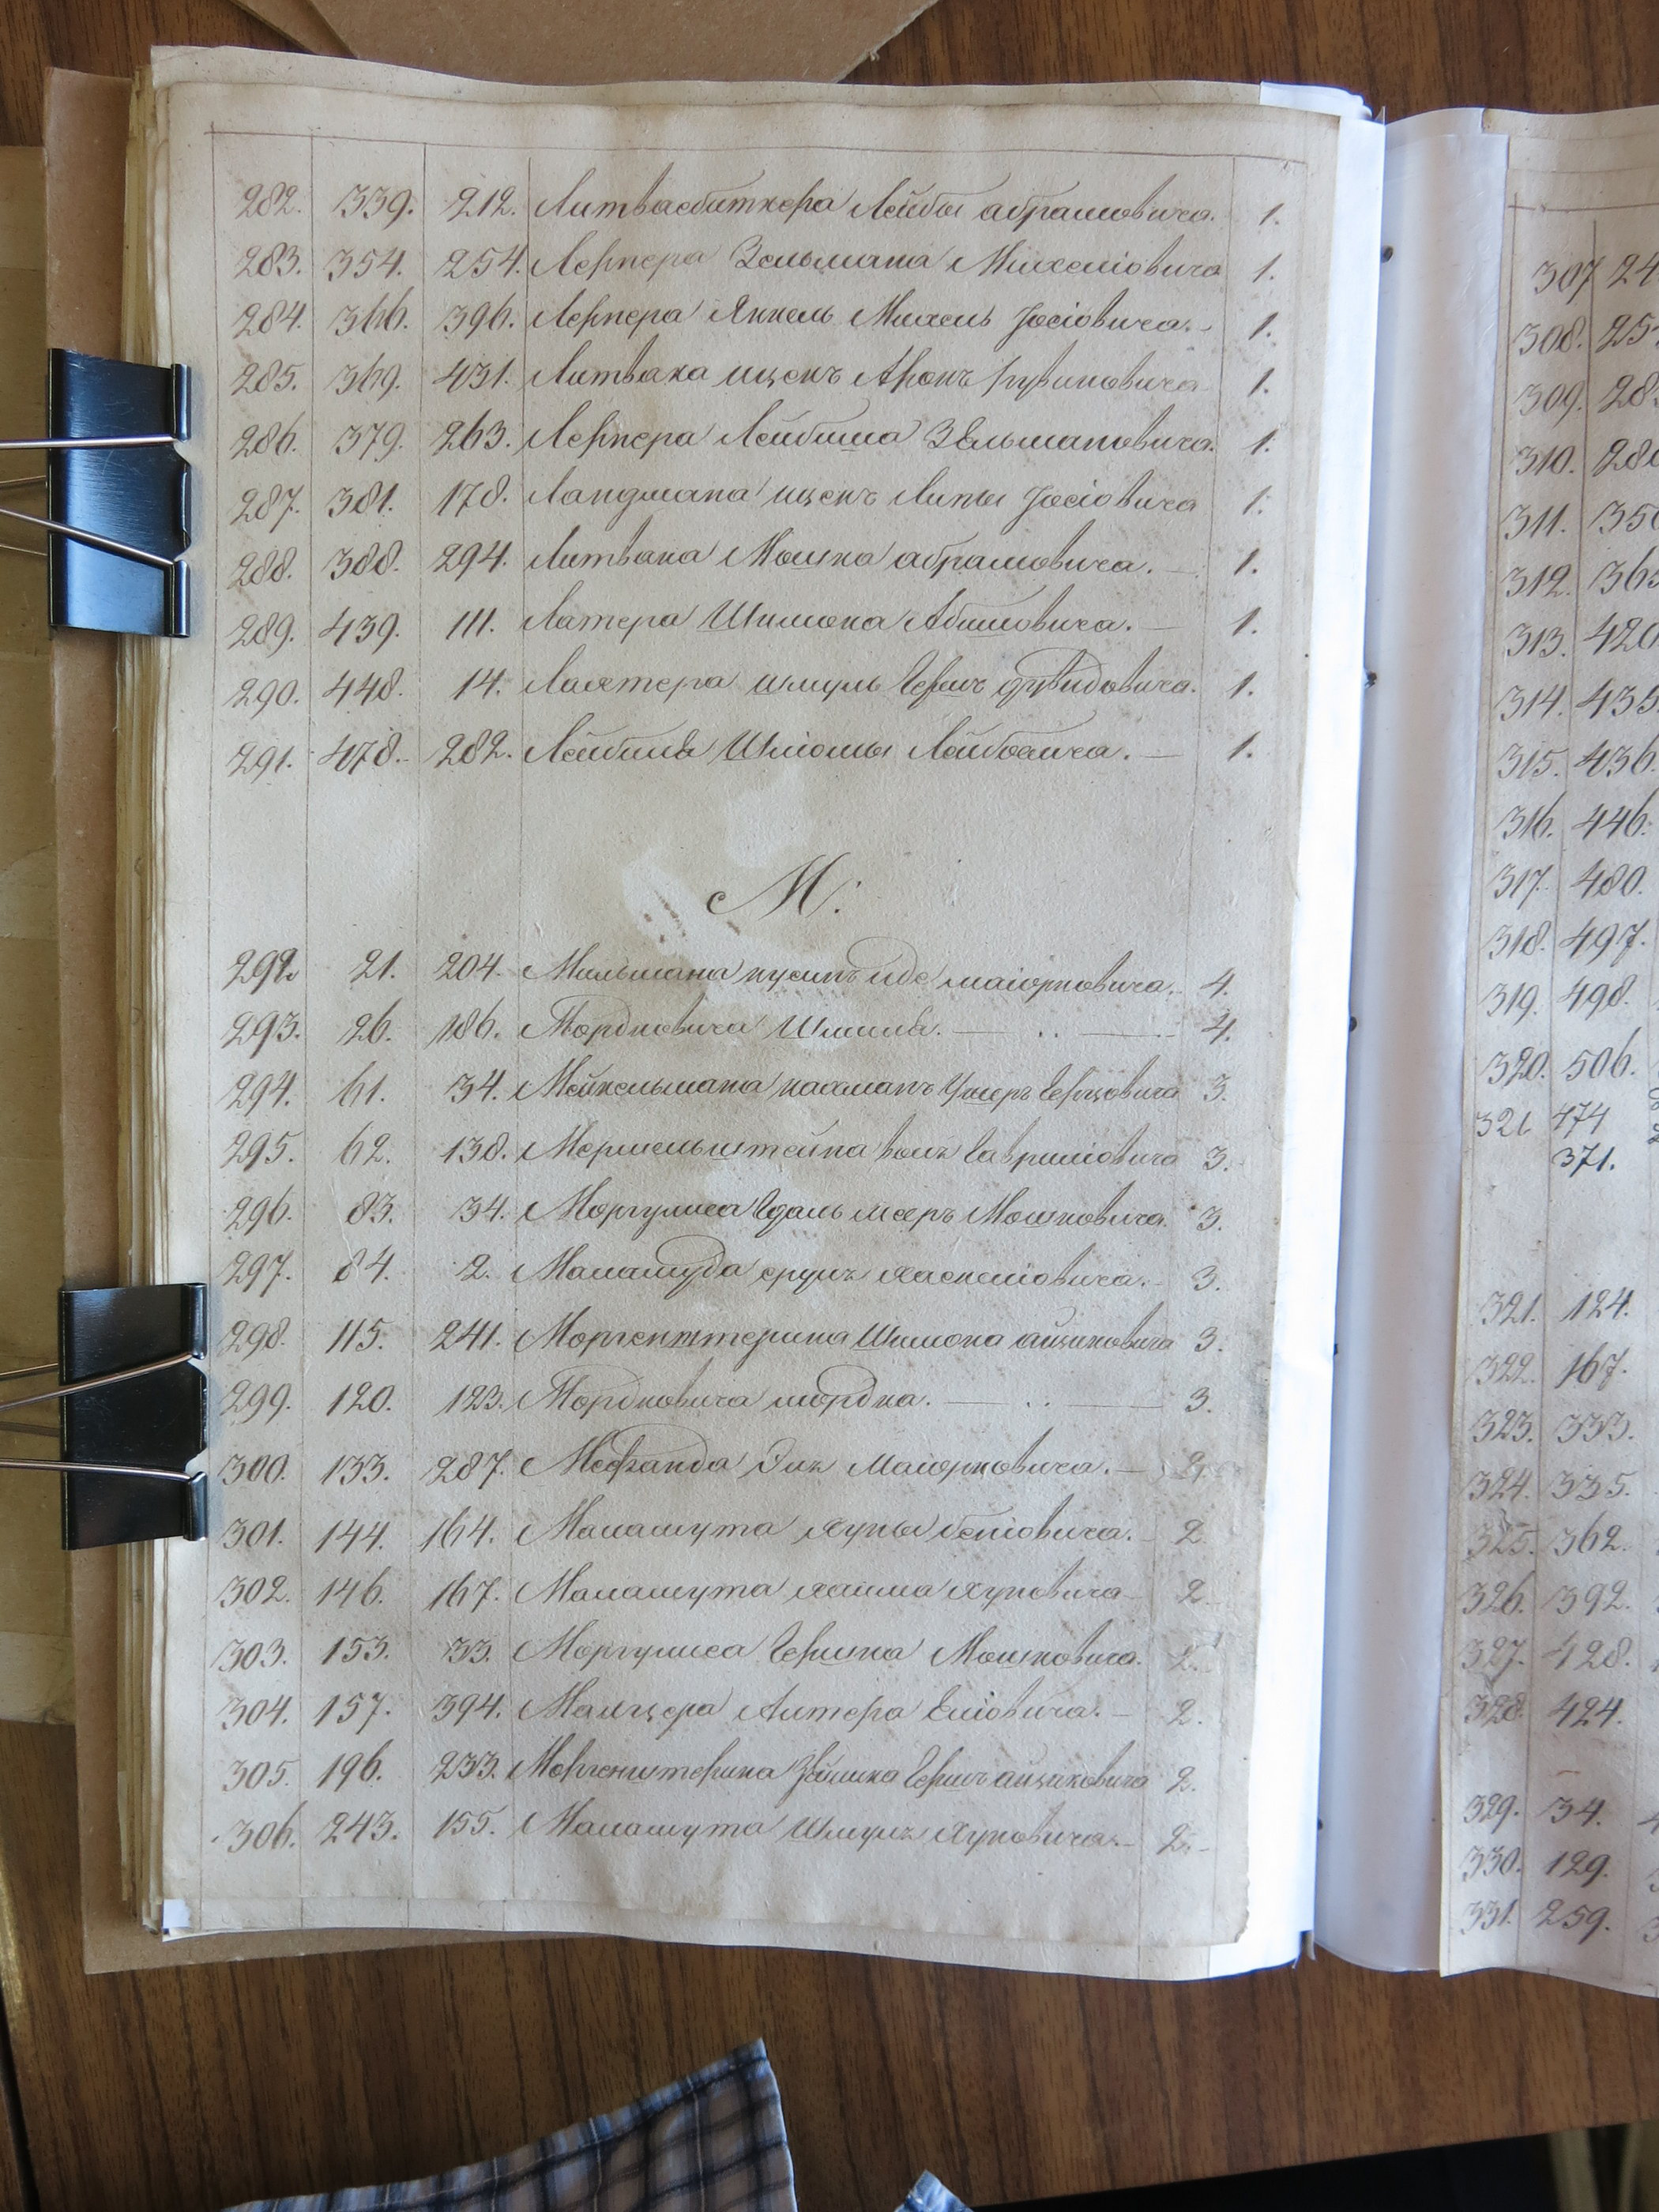 282. 339. 212. Литвасбиткера Лейбы абрамовича. 1.
283. 354. 254. Лернера Зельмана Михелiовича 1.
284. 366. 396. Лернера Янкель Михель Iосiовича. 1.
285. 369. 431. Литвака ицекъ Аронъ Рувиновича 1.
286. 379. 263. Лернера Лейбиша Зельмановича. 1.
287. 381. 178. Ландмана ицекъ Липы Iосiовича 1.
288. 388. 294. Литвака Мошка абрамовича. — 1.
289. 439. 111. Латера Шимона Абимовича. — 1.
290. 448. 14. Лахтера шмуль Герш дувидовича. 1.
291. 478. 282. Лейбиш Шлiомы Лейбовича. — 1.
М.
292. 21. 204. Мильмана нусинъ иде маiорковича. 4.
293. 26. 186. Мордковича — 4.
294. 61. 34. Мейкельмана нахманъ Умеръ Герцовича 3.
295. 62. 138. Мермельштейна волъ Гаврилiовича 3.
296. 83. 34. Моргулиса Едаль мееръ Мошковича. 3.
297. 84. 2. Маламуда срулъ хаскелiовича. 3.
298. 115. 241. Моргенштерина Шимона айзиковича 3.
299. 120. 123. Мордковича мордка. — 3.
300. 133. 287. Элик Маiорковича. — 2.
301. 144. 164. Маламута хуны бенiовича. 2.
302. 146. 167. Маламута хаима хуновича 2.
303. 153. 33. Моргулиса Гершка Мошковича. 2.
304. 157. 394. Малцера Алтера Елiовича. — 2.
305. 196. 233. Моргенштерина Герш айзиковича 2.
306. 243. 155. Маламута Шмулъ хуновича. 2.
307 24
308. 25
309. 28
310. 28
311. 35
312. 36
313. 420
314. 435
315. 436.
316. 446.
317. 480.
318. 497.
319. 498.
320. 506.
321 474
371.
321. 124.
322. 167.
323. 333.
324. 335.
325. 362.
326. 392.
327. 428.
328. 424.
329. 34.
330. 129.
331. 259.